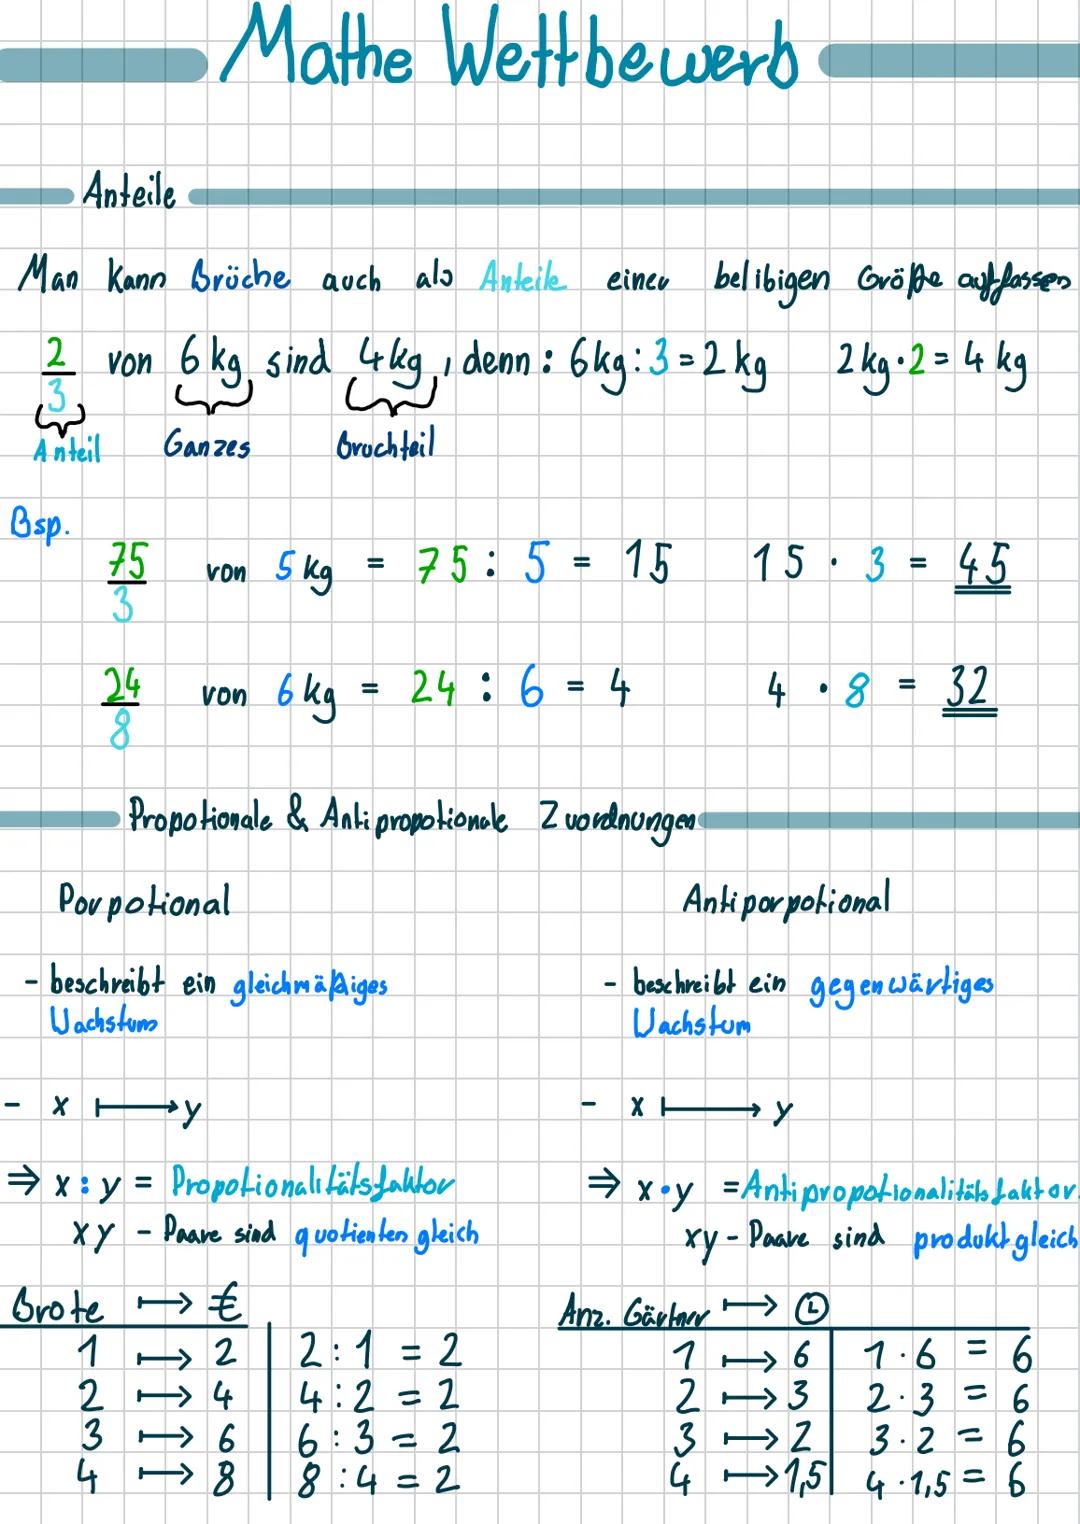 Mathe Wettbewerb
Anteile
Man kann Brüche auch als Anteile einer belibigen Größe auffassen
2/3 von 6 kg sind 4 kg, denn: 6 kg : 3 = 2 kg 2 kg · 2 = 4 kg
Anteil Ganzes Bruchteil
Bsp.
75/3 von 5 kg = 75 : 5 = 15 15 · 3 = 45
24/8 von 6 kg = 24 : 6 = 4 4 · 8 = 32
Propotionale & Antipropotionale Zuordnungen
Porpotional
- beschreibt ein gleichmäßiges
Wachstum
- x ↦ y
⇒ x : y = Propotionalitätsfaktor
xy - Paare sind quotienten gleich
Brote ↦ €
1 ↦ 2 | 2 : 1 = 2
2 ↦ 4 | 4 : 2 = 2
3 ↦ 6 | 6 : 3 = 2
4 ↦ 8 | 8 : 4 = 2
Antiporpotional
- beschreibt ein gegenwärtiges
Wachstum
- x ↦ y
⇒ x · y = Antipropotionalitätsfaktor.
xy - Paare sind produktgleich
Anz. Gärtner ↦
1 ↦ 6 | 1 · 6 = 6
2 ↦ 3 | 2 · 3 = 6
3 ↦ 2 | 3 · 2 = 6
4 ↦ 1,5 | 4 · 1,5 = 6